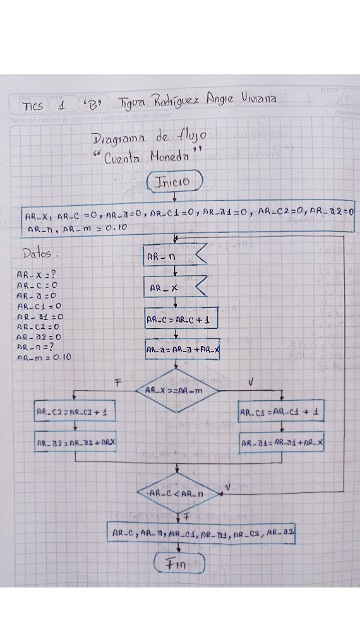 TICS 1 "B" Tigua Rodríguez Angie Viviana
Diagrama de flujo
"Cuenta Moneda"
Inicio
AR_X, AR_C=0, AR_a=0, AR_C1=0, AR_a1=0, AR_C2=0, AR_a2=0
AR_n, AR_m = 0.10
Datos:
AR_X=?
AR_C=0
AR_a=0
AR_C1=0
AR_a1=0
AR_C2=0
AR_a2=0
AR_n=?
AR_m=0.10
AR_n
AR_X
AR_C=AR_C+1
AR_a=AR_a+AR_X
F
AR_X==AR_m
V
AR_C2=AR_C2+1
AR_C1=AR_C1+1
AR_a2=AR_a2+ARX
AR_a1=AR_a1+AR_X
AR_C<AR_n
V
F
AR_C, AR_a, AR_C1, AR_a1, AR_C2, AR_a2
Fin